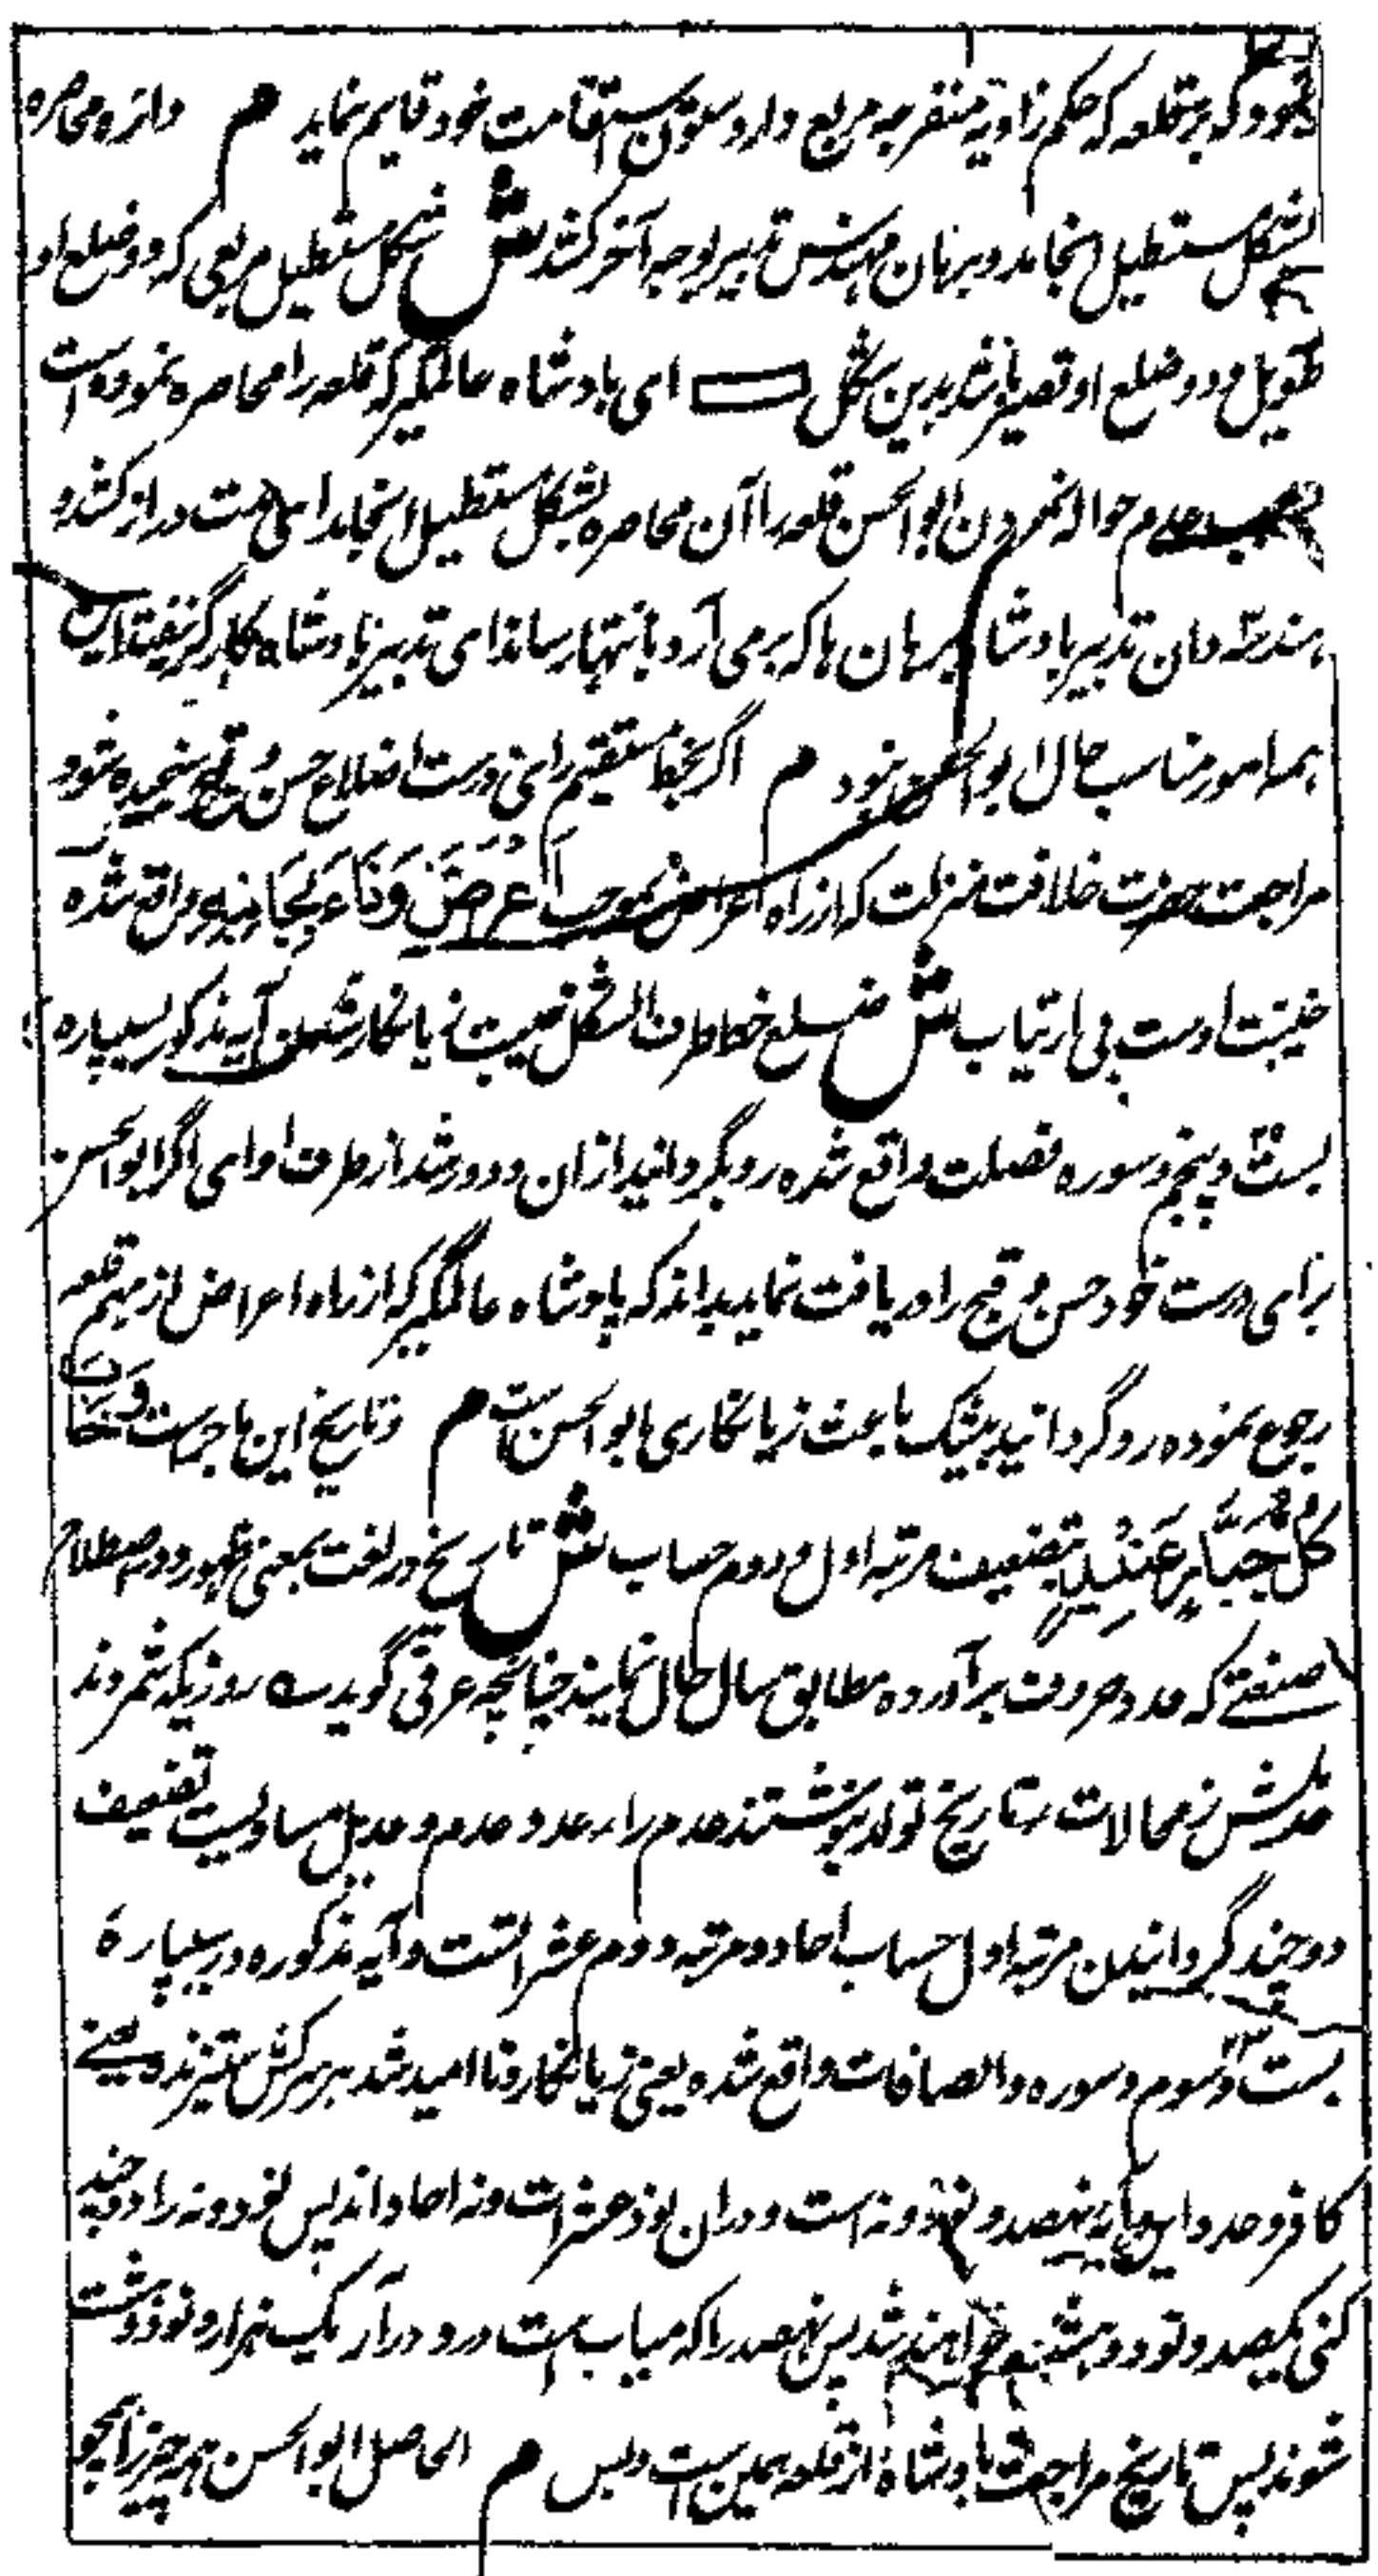 نمود که بر قلعه که حکم زاویه منفرجه مربع دارد ستون استقامت خود قایم نماید م دائره محاصره
بشکل مستطیل انجامد و برهان مهندس تدبیر بوجه آخر کشد ش شکل مستطیل مربعی که دو ضلع او
طویل و دو ضلع او قصیر باشد بدین شکل ای بادشاه عالمگیر که قلعه را محاصره نموده است
عدم حواله نمودن ابوالحسن قلعه را آن محاصره بشکل مستطیل انجامد ای مدت دراز کشد و
هندسه دان تدبیر بادشاه برهان ها که برمی آرد بانتها رساند ای تدبیر بادشاه کارگر نیفتد این
همه امور مناسب حال ابوالحسن نبود م اگر بخط مستقیم رای درست اضلاع حسن و قبح سنجیده شود
مراجعت حضرت خلافت منزلت که از راه اعراض بموجب اَعْرَضَ وَنَاءَ بِجَانِبِهِ واقع شده
خیبت اوست بی ارتیاب ش ضلع خط اطراف الشکل خیبت زیانکار شدن آیه مذکور بسیپاره
بست و پنجم و سوره فصلت واقع شده رو بگردانید ازان و دور شد از طرف او ای اگر ابوالحسن
برای درست خود حسن و قبح را دریافت نماید بداند که پادشاه عالمگیر که از راه اعراض از مهم قلعه
رجوع نموده رو گردانید بیشک باعث زیانکاری ابوالحسن است م و تاریخ این ماجراست وَخَابَ
کُلُّ جَبَّارٍ عَنِیدٍ بتضعیف مرتبه اول و دوم حساب ش تاریخ در لغت بمعنی ظهور و در اصطلاح
صنعتی که عدد حروف برآورده مطابق سال حال نمایند چنانچه عرفی گوید سه روزیکه شمردند
عدیلش ز محالات تاریخ تولد بنوشتند عدم را عدد عدم و عدیل مساویست تضعیف
دو چند گردانیدن مرتبه اول حساب احاد و مرتبه دوم عشراتست و آیه مذکوره در سیپاره
بست و سوم و سوره والصافات واقع شده یعنی زیانکار و ناامید شد هر سرکش ستیزنده یعنی
کافر و عدد این آیه نهصد و نود و نه است و دران نود عشرات و نه احاد اند پس نود و نه را دو چند
کنی یکصد و نود و هشت خواهند شد پس نهصد را که میاب است درو درآر یک هزار و نود و هشت
شوند پس تاریخ مراجعت بادشاه از قلعه همین است و بس م الحاصل ابوالحسن همه چیز را بجو